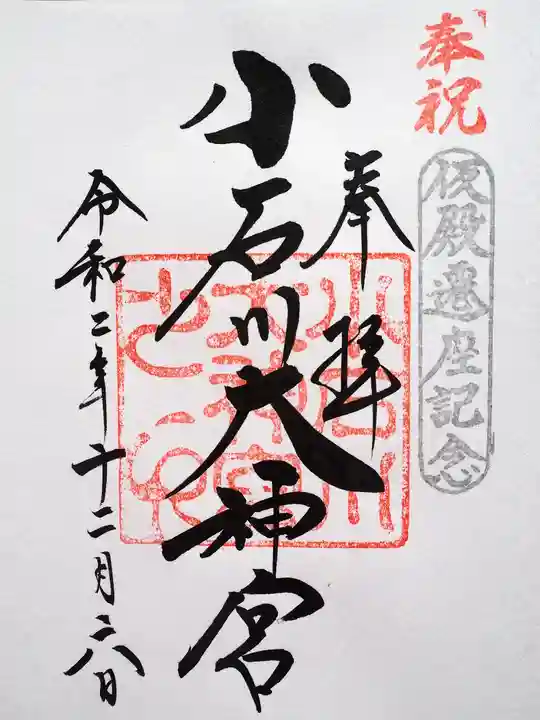 奉祝
仮殿遷座記念
奉拝
小石川大神宮
令和二年十二月二八日